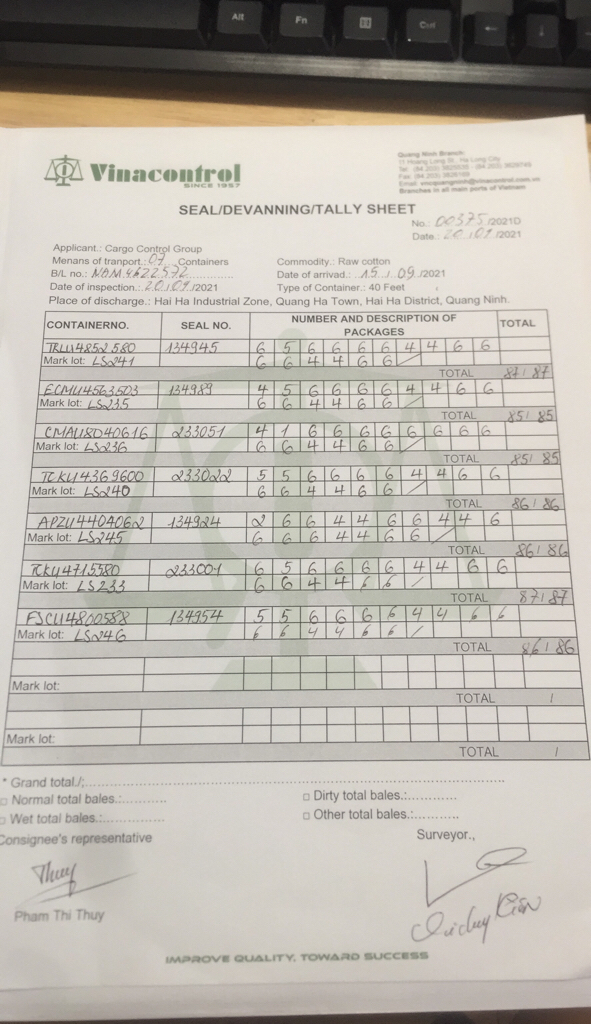 Alt Fn Ctrl
Vinacontrol
SINCE 1957
Quang Ninh Branch:
11 Hoang Long St., Ha Long City
Email: vncquangninh@vinacontrol.com.vn
Branches in all main ports of Vietnam
SEAL/DEVANNING/TALLY SHEET
No.: 00375/2021D
Date.: 20/09/2021
Applicant.: Cargo Control Group
Menans of tranport.: 07 Containers
Commodity.: Raw cotton
B/L no.: NAM4622572
Date of arrivad.: 15/09/2021
Date of inspection.: 20/09/2021
Type of Container.: 40 Feet
Place of discharge.: Hai Ha Industrial Zone, Quang Ha Town, Hai Ha District, Quang Ninh.
CONTAINERNO. SEAL NO. NUMBER AND DESCRIPTION OF PACKAGES TOTAL
134945 6 5 6 6 6 6 4 4 6 6
Mark lot: LS241 6 6 4 4 6 6 /
TOTAL 87/87
ECMU4563503 134989 4 5 6 6 6 6 4 4 6 6
Mark lot: LS235 6 6 4 4 6 6 /
TOTAL 85/85
CMAU8040616 233051 4 1 6 6 6 6 6 6 6 6
Mark lot: LS236 6 6 4 4 6 6 /
TOTAL 85/85
TCKU4369600 233022 5 5 6 6 6 6 4 4 6 6
Mark lot: LS240 6 6 4 4 6 6 /
TOTAL 86/86
APZU4404062 134924 2 6 6 4 4 6 6 4 4 6
Mark lot: LS245 6 6 6 4 4 6 6 /
TOTAL 86/86
TCKU4715580 233001 6 5 6 6 6 6 4 4 6 6
Mark lot: LS233 6 6 4 4 6 6 /
TOTAL 87/87
FSCU4800588 134954 5 5 6 6 6 6 4 4 6 6
Mark lot: LS246 6 6 4 4 6 6 /
TOTAL 86/86
Mark lot:
TOTAL /
Mark lot:
TOTAL /
* Grand total./:
□ Normal total bales.:
□ Dirty total bales.:
□ Wet total bales.:
□ Other total bales.:
Consignee's representative
Surveyor.,
Thuy
Pham Thi Thuy
IMPROVE QUALITY, TOWARD SUCCESS